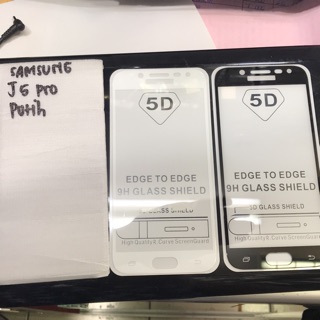 SAMSUNG
J5 Pro
Putih
5D
EDGE TO EDGE
9H GLASS SHIELD
GLASS SHIELD
High Quality & Curve Screen Guard
5D
EDGE TO EDGE
9H GLASS SHIELD
5D GLASS SHIELD
High Quality & Curve Screen Guard